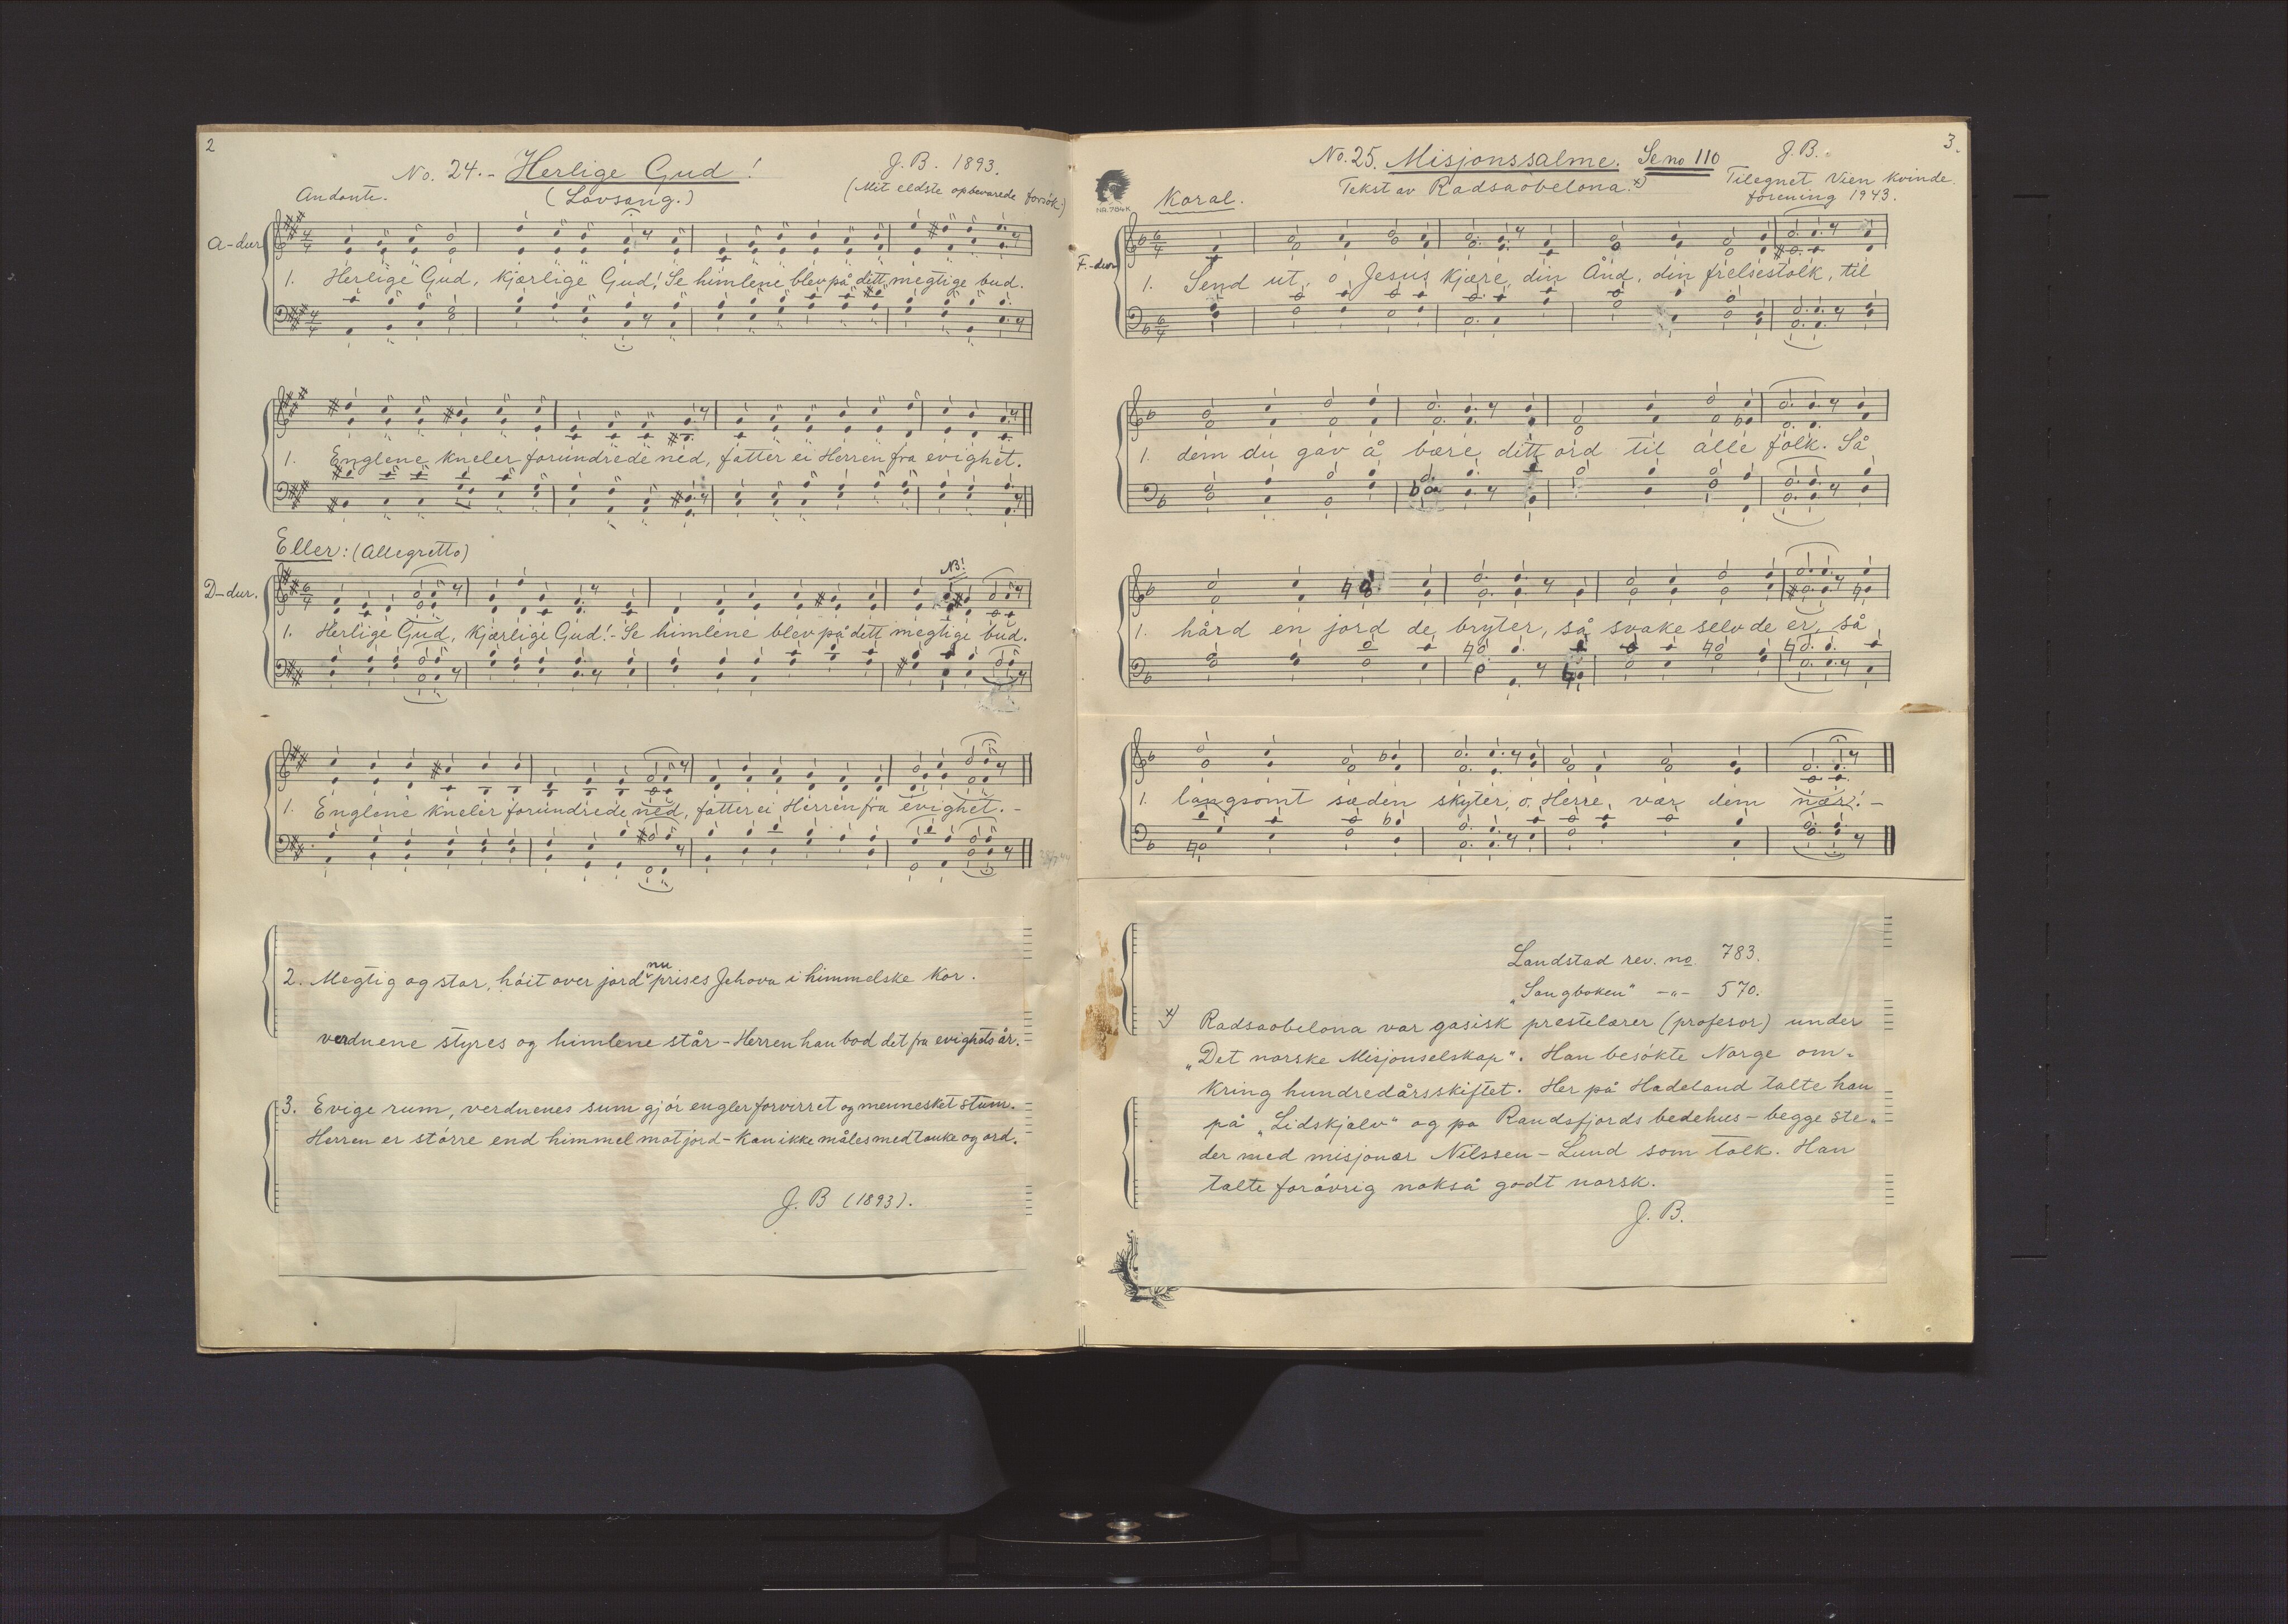 2
No. 24. - Herlige Gud!
J. B. 1893.
Andante.
(Lovsang.)
(Mit eldste opbevarede forsök.)
A-dur
1. Herlige Gud, kjærlige Gud! Se himlene blev på ditt megtige bud.
1. Englene kneler forundrede ned, fatter ei Herren fra evighet.
Eller: (Allegretto)
NB!
D-dur.
1. Herlige Gud, kjærlige Gud! - Se himlene blev på ditt megtige bud.
1. Englene kneler forundrede ned, fatter ei Herren fra evighet. -
2. Megtig og stor, höit over jord nu prises Jehova i himmelske kor.
verdnene styres og himlene står - Herren han bød det fra evighets år.
3. Evige rum, verdnenes sum gjör engler forvirret og mennesket stum.
Herren er större end himmel mot jord - Kan ikke måles med tanke og ord.
J. B (1893).
3.
No. 25. Misjonssalme. Se no 110
J. B.
Tekst av Radsaobelona. x)
Tilegnet Vien Kvinde-
forening 1943.
NR. 784 K
Koral.
F-dur
1. Send ut, o Jesus kjære, din Ånd, din frelsestolk, til
1. dem du gav å bære ditt ord til alle folk. Så
1. hård en jord de bryter, så svake selv de er, så
1. langsomt sæden skyter, o, Herre, vær dem nær! -
Landstad rev. no. 783.
"Sangboken" -"- 570.
x) Radsaobelona var gasisk prestelærer (profesor) under
"Det norske Misjonselskap". Han besökte Norge om-
kring hundredårsskiftet. Her på Hadeland talte han
på "Lidskjalv" og pa Randsfjords bedehus - begge ste-
der med misjonær Nilssen-Lund som tolk. Han
talte forövrig nokså godt norsk.
J. B.